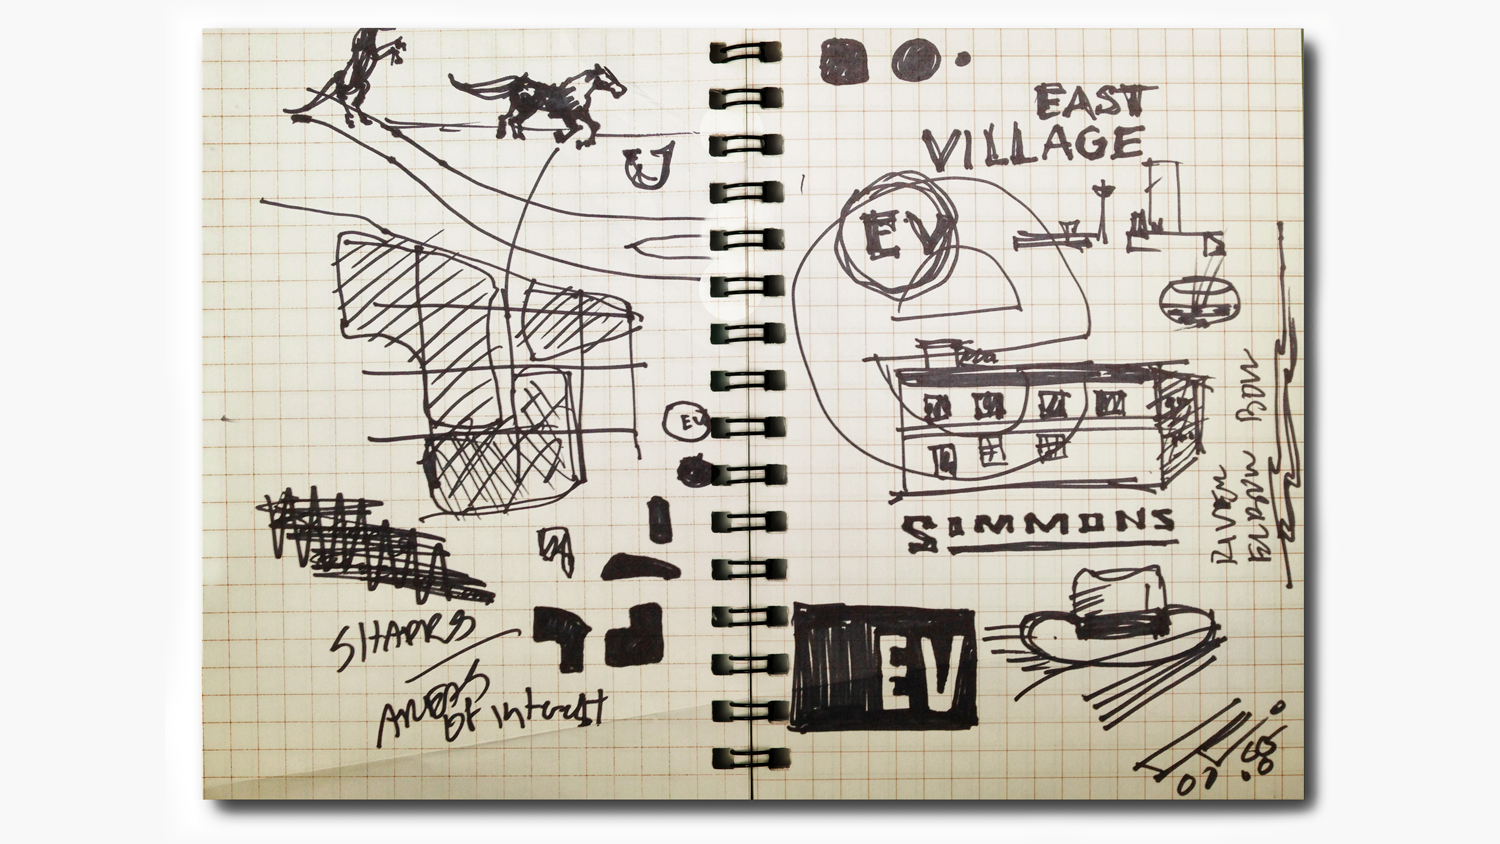 EV
SHAPES
AREAS
OF interest
EAST
VILLAGE
EV
SIMMONS
RIVER
ELBOW BOW
EV